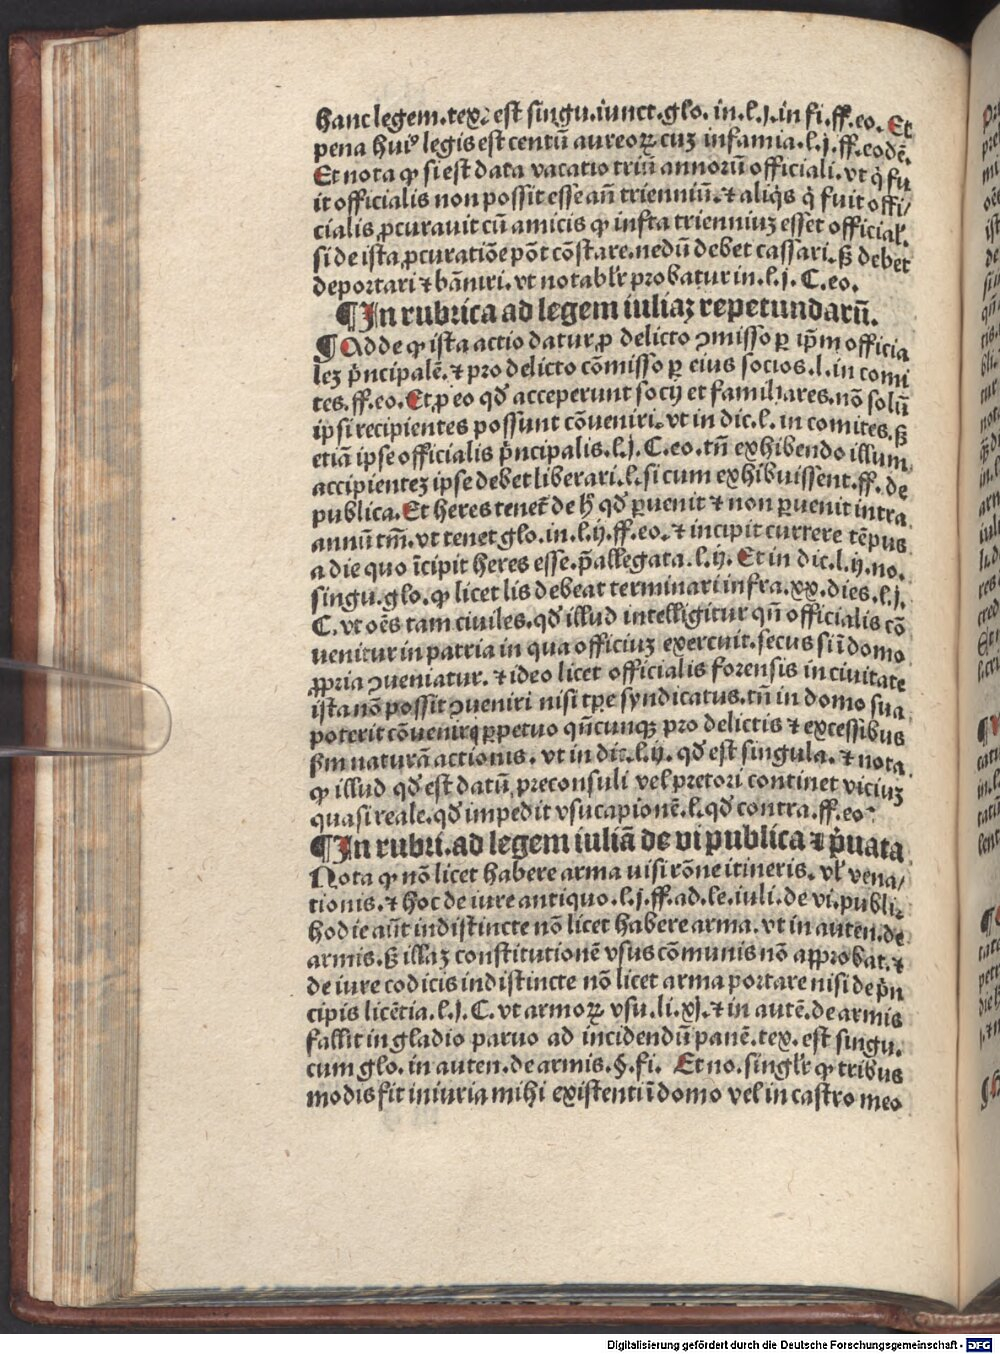 hanc legem.tex. est singu.iunct.glo. in.l.j.in fi.ff.eo. Et
pena huiꝰ legis est centū aureoꝝ cuz infamia.l.j.ff.eodē.
Et nota ꝙ si est data vacatio triū annorū officiali.vt q̇ fu
it officialis non possit esse añ trienniū.⁊ aliq̇s q̇ fuit offi/
cialis ꝓcurauit cū amicis ꝙ infra trienniuz esset official̓.
si de ista ꝓcuratiōe pōt cōstare.nedū debet cassari.sꝫ debet
deportari ⁊ bāniri.vt notabl̓r probatur in.l.j. C.eo.
¶In rubrica ad legem iuliaz repetundarū.
¶Adde ꝙ ista actio datur ꝓ delicto ꝯmisso ꝑ ip̄m officia
lez pͥncipalē.⁊ pro delicto cōmisso ꝑ eius socios.l.in comi
tes.ff.eo.Et ꝓ eo qđ acceperunt socij et familiares.nō solū
ipsi recipientes possunt cōueniri.vt in dic.l. in comites.sꝫ
etiā ipse officialis pͥncipalis.l.j.C.eo.tn̄ exhibendo illum
accipientez ipse debet liberari.l.si cum exhibuissent.ff.de
publica.Et heres tenet̉ de h̓ qđ ꝑuenit ⁊ non ꝑuenit intra
annū tm̄.vt tenet glo.in.l.ij.ff.eo.⁊ incipit currere tēpus
a die quo īcipit heres esse.p̄allegata.l.ij. Et in dic.l.ij.no.
singu.glo.ꝙ licet lis debeat terminari infra.xx.dies.l.j.
C.vt oēs tam ciuiles.qđ illud intelligitur qn̄ officialis cō
uenitur in patria in qua officiuz exercuit.secus si ī domo
ꝓpria ꝯueniatur.⁊ ideo licet officialis forensis in ciuitate
ista nō possit ꝯueniri nisi tꝑe syndicatus.tn̄ in domo sua
poterit cōueniri ꝑpetuo qn̄cunqꝫ pro delictis ⁊ excessibus
ẜm naturā actionis. vt in dic.l.ij. qđ est singula. ⁊ nota
ꝙ illud qđ est datū preconsuli vel pretori continet viciuz
quasi reale.qđ impedit vsucapionē.l.qđ contra.ff.eo
¶In rubri.ad legem iuliā de vi publica ⁊ pͥuata
Nota ꝙ nō licet habere arma nisi rōne itineris. vl̓ vena/
tionis.⁊ hoc de iure antiquo.l.j.ff.ad.le.iuli.de vi.publi.
hodie aūt indistincte nō licet habere arma.vt in auten.de
armis.sꝫ illaz constitutionē vsus cōmunis nō approbat.⁊
de iure codicis indistincte nō licet arma portare nisi de pͥn
cipis licētia.l.j.C.vt armoꝝ vsu.li.xj.⁊ in autē.de armis
fallit in gladio paruo ad incidendū panē.tex.est singu.
cum glo. in auten.de armis.§.fi. Et no.singl̓r ꝙ tribus
modis fit iniuria mihi existenti ī domo vel in castro meo
Digitalisierung gefördert durch die Deutsche Forschungsgemeinschaft - DFG